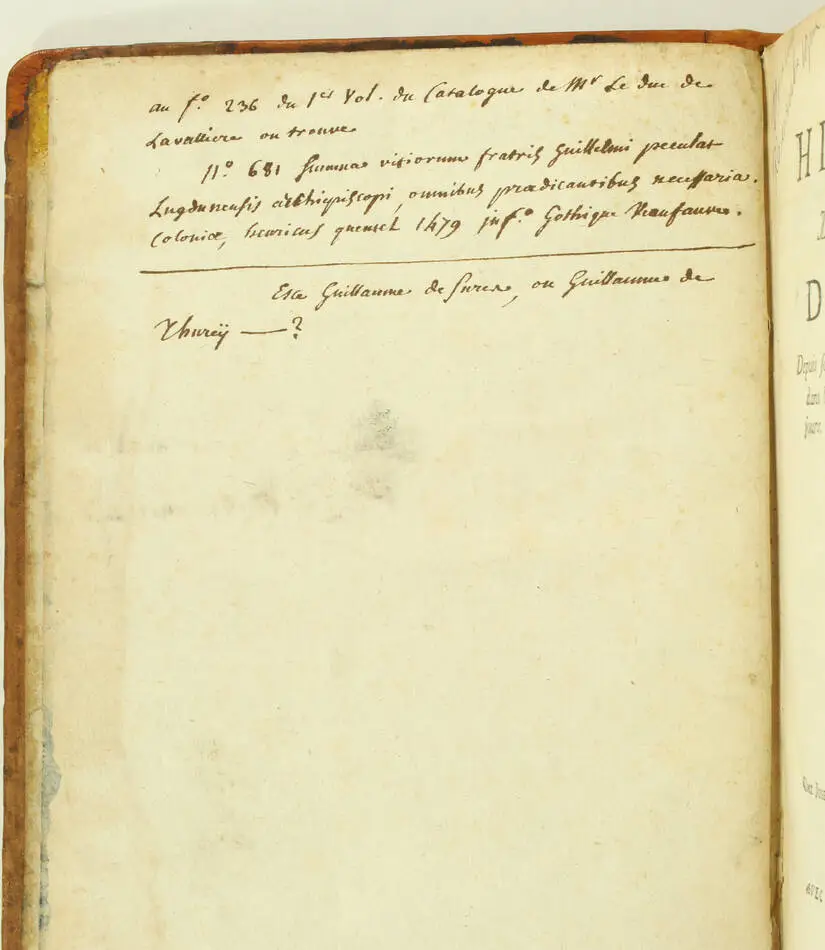 au f.º 236 du 1er Vol. du Catalogue de Mr Le duc de
Lavalliere on trouve
nº 681 Summa vitiorum fratris Guillelmi
Lugdunensis archiepiscopi, omnibus praedicantibus necessaria.
Coloniæ, henricus quentel 1479 in fº Gothique
Est Guillaume de Sure, ou Guillaume de
Thureÿ —— ?
HI
D
Depuis
dans